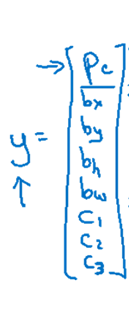 y =
Pc
bx
by
bh
bw
C1
C2
C3